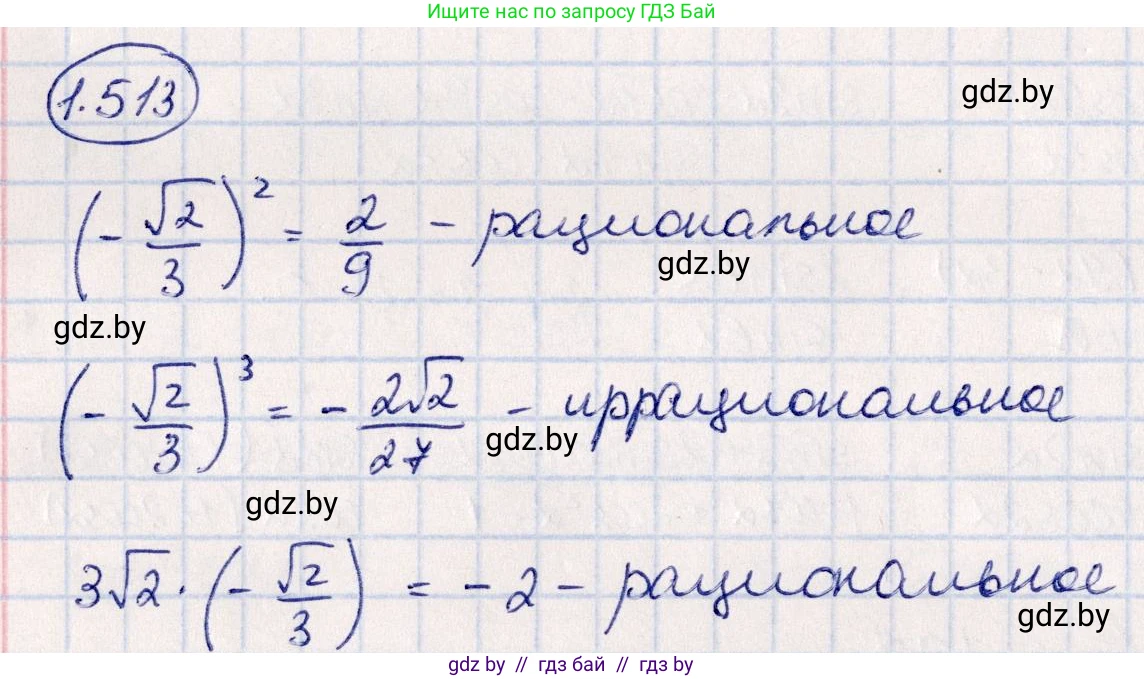 Ищите нас по запросу ГДЗ Бай
1.513
gdz.by
(-√2/3)² = 2/9 - рациональное
gdz.by
gdz.by
(-√2/3)³ = - 2√2/27 - иррациональное
gdz.by
gdz.by
3√2 · (-√2/3) = -2 - рациональное
gdz.by
gdz by // гдз бай // гдз by